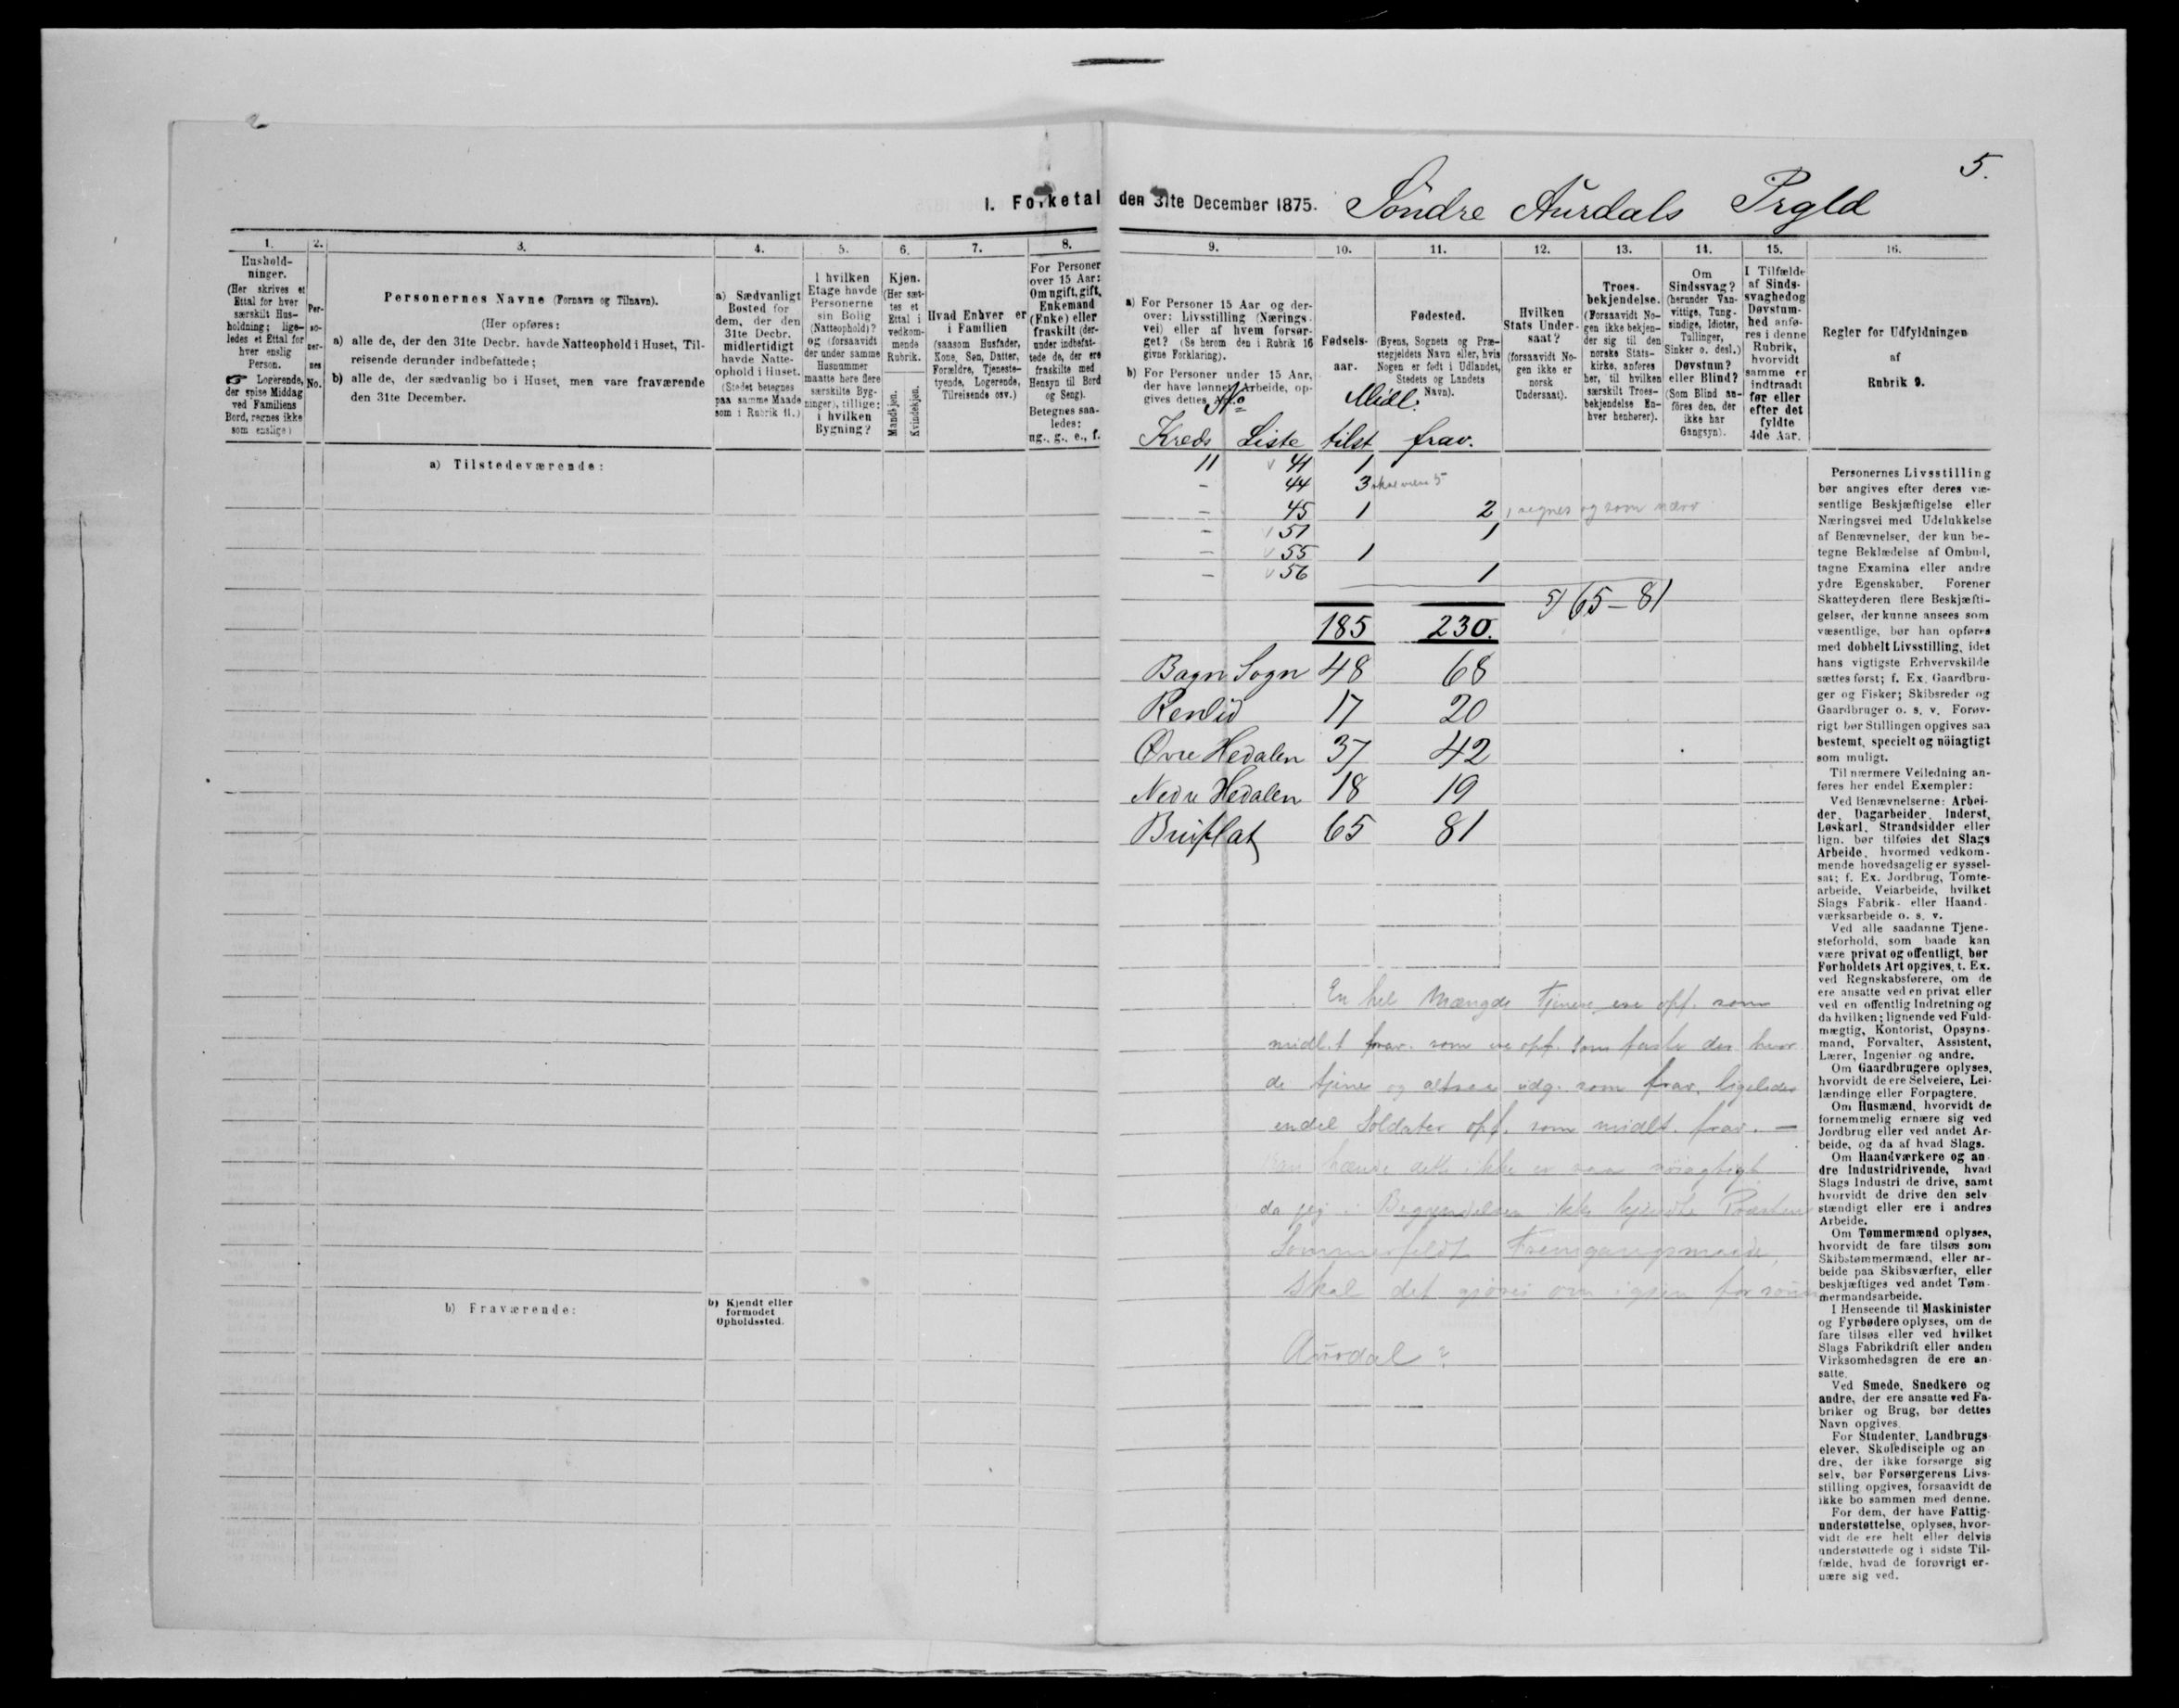 5.
I. Folketal den 31te December 1875. Söndre Aurdals Prgld
1.
2.
3.
4.
5.
6.
7.
8.
9.
10.
11.
12.
13.
14.
15.
16.
Hushold-
ninger.
(Her skrives et
Ettal for hver
særskilt Hus-
holdning; lige-
ledes et Ettal for
hver enslig
Person.
☞ Logerende,
der spise Middag
ved Familiens
Bord, regnes ikke
som enslige)
Per-
so-
ner-
nes
No.
Personernes Navne (Fornavn og Tilnavn).
(Her opføres:
a) alle de, der den 31te Decbr. havde Natteophold i Huset, Til-
reisende derunder indbefattede;
b) alle de, der sædvanlig bo i Huset, men vare fraværende
den 31te December.
a) Sædvanligt
Bosted for
dem, der den
31te Decbr.
midlertidigt
havde Natte-
ophold i Huset.
(Stedet betegnes
paa samme Maade
som i Rubrik 11.)
I hvilken
Etage havde
Personerne
sin Bolig
(Natteophold)?
og (forsaavidt
der under samme
Husnummer
maatte høre flere
særskilte Byg-
ninger), tillige:
i hvilken
Bygning?
Kjøn.
(Her sæt-
tes et
Ettal i
vedkom-
mende
Rubrik.
Mandkjøn.
Kvindekjøn.
Hvad Enhver er
i Familien
(saasom Husfader,
Kone, Søn, Datter,
Forældre, Tjeneste-
tyende, Logerende,
Tilreisende osv.)
For Personer
over 15 Aar:
Om ugift, gift,
Enkemand
(Enke) eller
fraskilt (der-
under indbefat-
tede de, der ere
fraskilte med
Hensyn til Bord
og Seng).
Betegnes saa-
ledes:
ug., g., e., f.
a) For Personer 15 Aar og der-
over: Livsstilling (Nærings-
vei) eller af hvem forsør-
get? (Se herom den i Rubrik 16
givne Forklaring).
b) For Personer under 15 Aar,
der have lønnet Arbeide, op-
gives dettes Art.
Fødsels-
aar.
Fødested.
(Byens, Sognets og Præ-
stegjeldets Navn eller, hvis
Nogen er født i Udlandet,
Stedets og Landets
Navn).
Hvilken
Stats Under-
saat?
(forsaavidt No-
gen ikke er
norsk
Undersaat).
Troes-
bekjendelse.
(Forsaavidt No-
gen ikke bekjen-
der sig til den
norske Stats-
kirke, anføres
her, til hvilken
særskilt Troes-
bekjendelse En-
hver henhører).
Om
Sindssvag?
(herunder Van-
vittige, Tung-
sindige, Idioter,
Tullinger,
Sinker o. desl.)
Døvstum?
eller Blind?
(Som Blind an-
föres den, der
ikke har
Gangsyn).
I Tilfælde
af Sinds-
svaghed og
Døvstum-
hed anfø-
res i denne
Rubrik,
hvorvidt
samme er
indtraadt
før eller
efter det
fyldte
4de Aar.
Regler for Udfyldningen
af
Rubrik 9.
No Midl.
Kreds Liste tilst frav.
a) Tilstedeværende:
11 41 1
- 44 3 skal være 5
- 45 1 2 regnes og som nærv
- 51 1
- 55 1
- 56 1
5) 65-81
185 230.
Bagn Sogn 48 68
Renlid 17 20
Øvre Hedalen 37 42
Nedre Hedalen 18 19
Bruflat 65 81
En hel Mængde Tjenere ere opf. som
midl.t frav. som ere opf. som faste der hvor
de tjene og altsaa udg. som frav. ligeledes
endel Soldater opf. som midlt. frav. —
Kan hænde dette ikke er saa nöiagtigt
da jeg i Begyndelsen ikke kjendte
Sommerfeldt Fremgangsmaade,
Skal det gjöres om igjen for söndr
Aurdal?
b) Fraværende:
b) Kjendt eller
formodet
Opholdssted.
Personernes Livsstilling
bør angives efter deres væ-
sentlige Beskjæftigelse eller
Næringsvei med Udelukkelse
af Benævnelser, der kun be-
tegne Beklædelse af Ombud,
tagne Examina eller andre
ydre Egenskaber. Forener
Skatteyderen flere Beskjæfti-
gelser, der kunne ansees som
væsentlige, bør han opføres
med dobbelt Livsstilling, idet
hans vigtigste Erhvervskilde
sættes først; f. Ex. Gaardbru-
ger og Fisker; Skibsreder og
Gaardbruger o. s. v. Forøv-
rigt bør Stillingen opgives saa
bestemt, specielt og nöiagtigt
som muligt.
Til nærmere Veiledning an-
føres her endel Exempler:
Ved Benævnelserne: Arbei-
der, Dagarbeider, Inderst,
Løskarl, Strandsidder eller
lign. bør tilføies det Slags
Arbeide, hvormed vedkom-
mende hovedsagelig er syssel-
sat; f. Ex. Jordbrug, Tomte-
arbeide, Veiarbeide, hvilket
Slags Fabrik- eller Haand-
værksarbeide o. s. v.
Ved alle saadanne Tjene-
steforhold, som baade kan
være privat og offentligt, bør
Forholdets Art opgives, t. Ex.
ved Regnskabsførere, om de
ere ansatte ved en privat eller
ved en offentlig Indretning og
da hvilken; lignende ved Fuld-
mægtig, Kontorist, Opsyns-
mand, Forvalter, Assistent,
Lærer, Ingeniør og andre.
Om Gaardbrugere oplyses,
hvorvidt de ere Selveiere, Lei-
lændinge eller Forpagtere.
Om Husmænd, hvorvidt de
fornemmelig ernære sig ved
Jordbrug eller ved andet Ar-
beide, og da af hvad Slags.
Om Haandværkere og an-
dre Industridrivende, hvad
Slags Industri de drive, samt
hvorvidt de drive den selv-
stændigt eller ere i andres
Arbeide.
Om Tømmermænd oplyses,
hvorvidt de fare tilsøs som
Skibstømmermænd, eller ar-
beide paa Skibsværfter, eller
beskjæftiges ved andet Tøm-
mermandsarbeide.
I Henseende til Maskinister
og Fyrbødere oplyses, om de
fare tilsøs eller ved hvilket
Slags Fabrikdrift eller anden
Virksomhedsgren de ere an-
satte.
Ved Smede, Snedkere og
andre, der ere ansatte ved Fa-
briker og Brug, bør dettes
Navn opgives.
For Studenter, Landbrugs-
elever, Skoledisciple og an-
dre, der ikke forsørge sig
selv, bør Forsørgerens Livs-
stilling opgives, forsaavidt de
ikke bo sammen med denne.
For dem, der have Fattig-
understøttelse, oplyses, hvor-
vidt de ere helt eller delvis
understøttede og i sidste Til-
fælde, hvad de forøvrigt er-
nære sig ved.